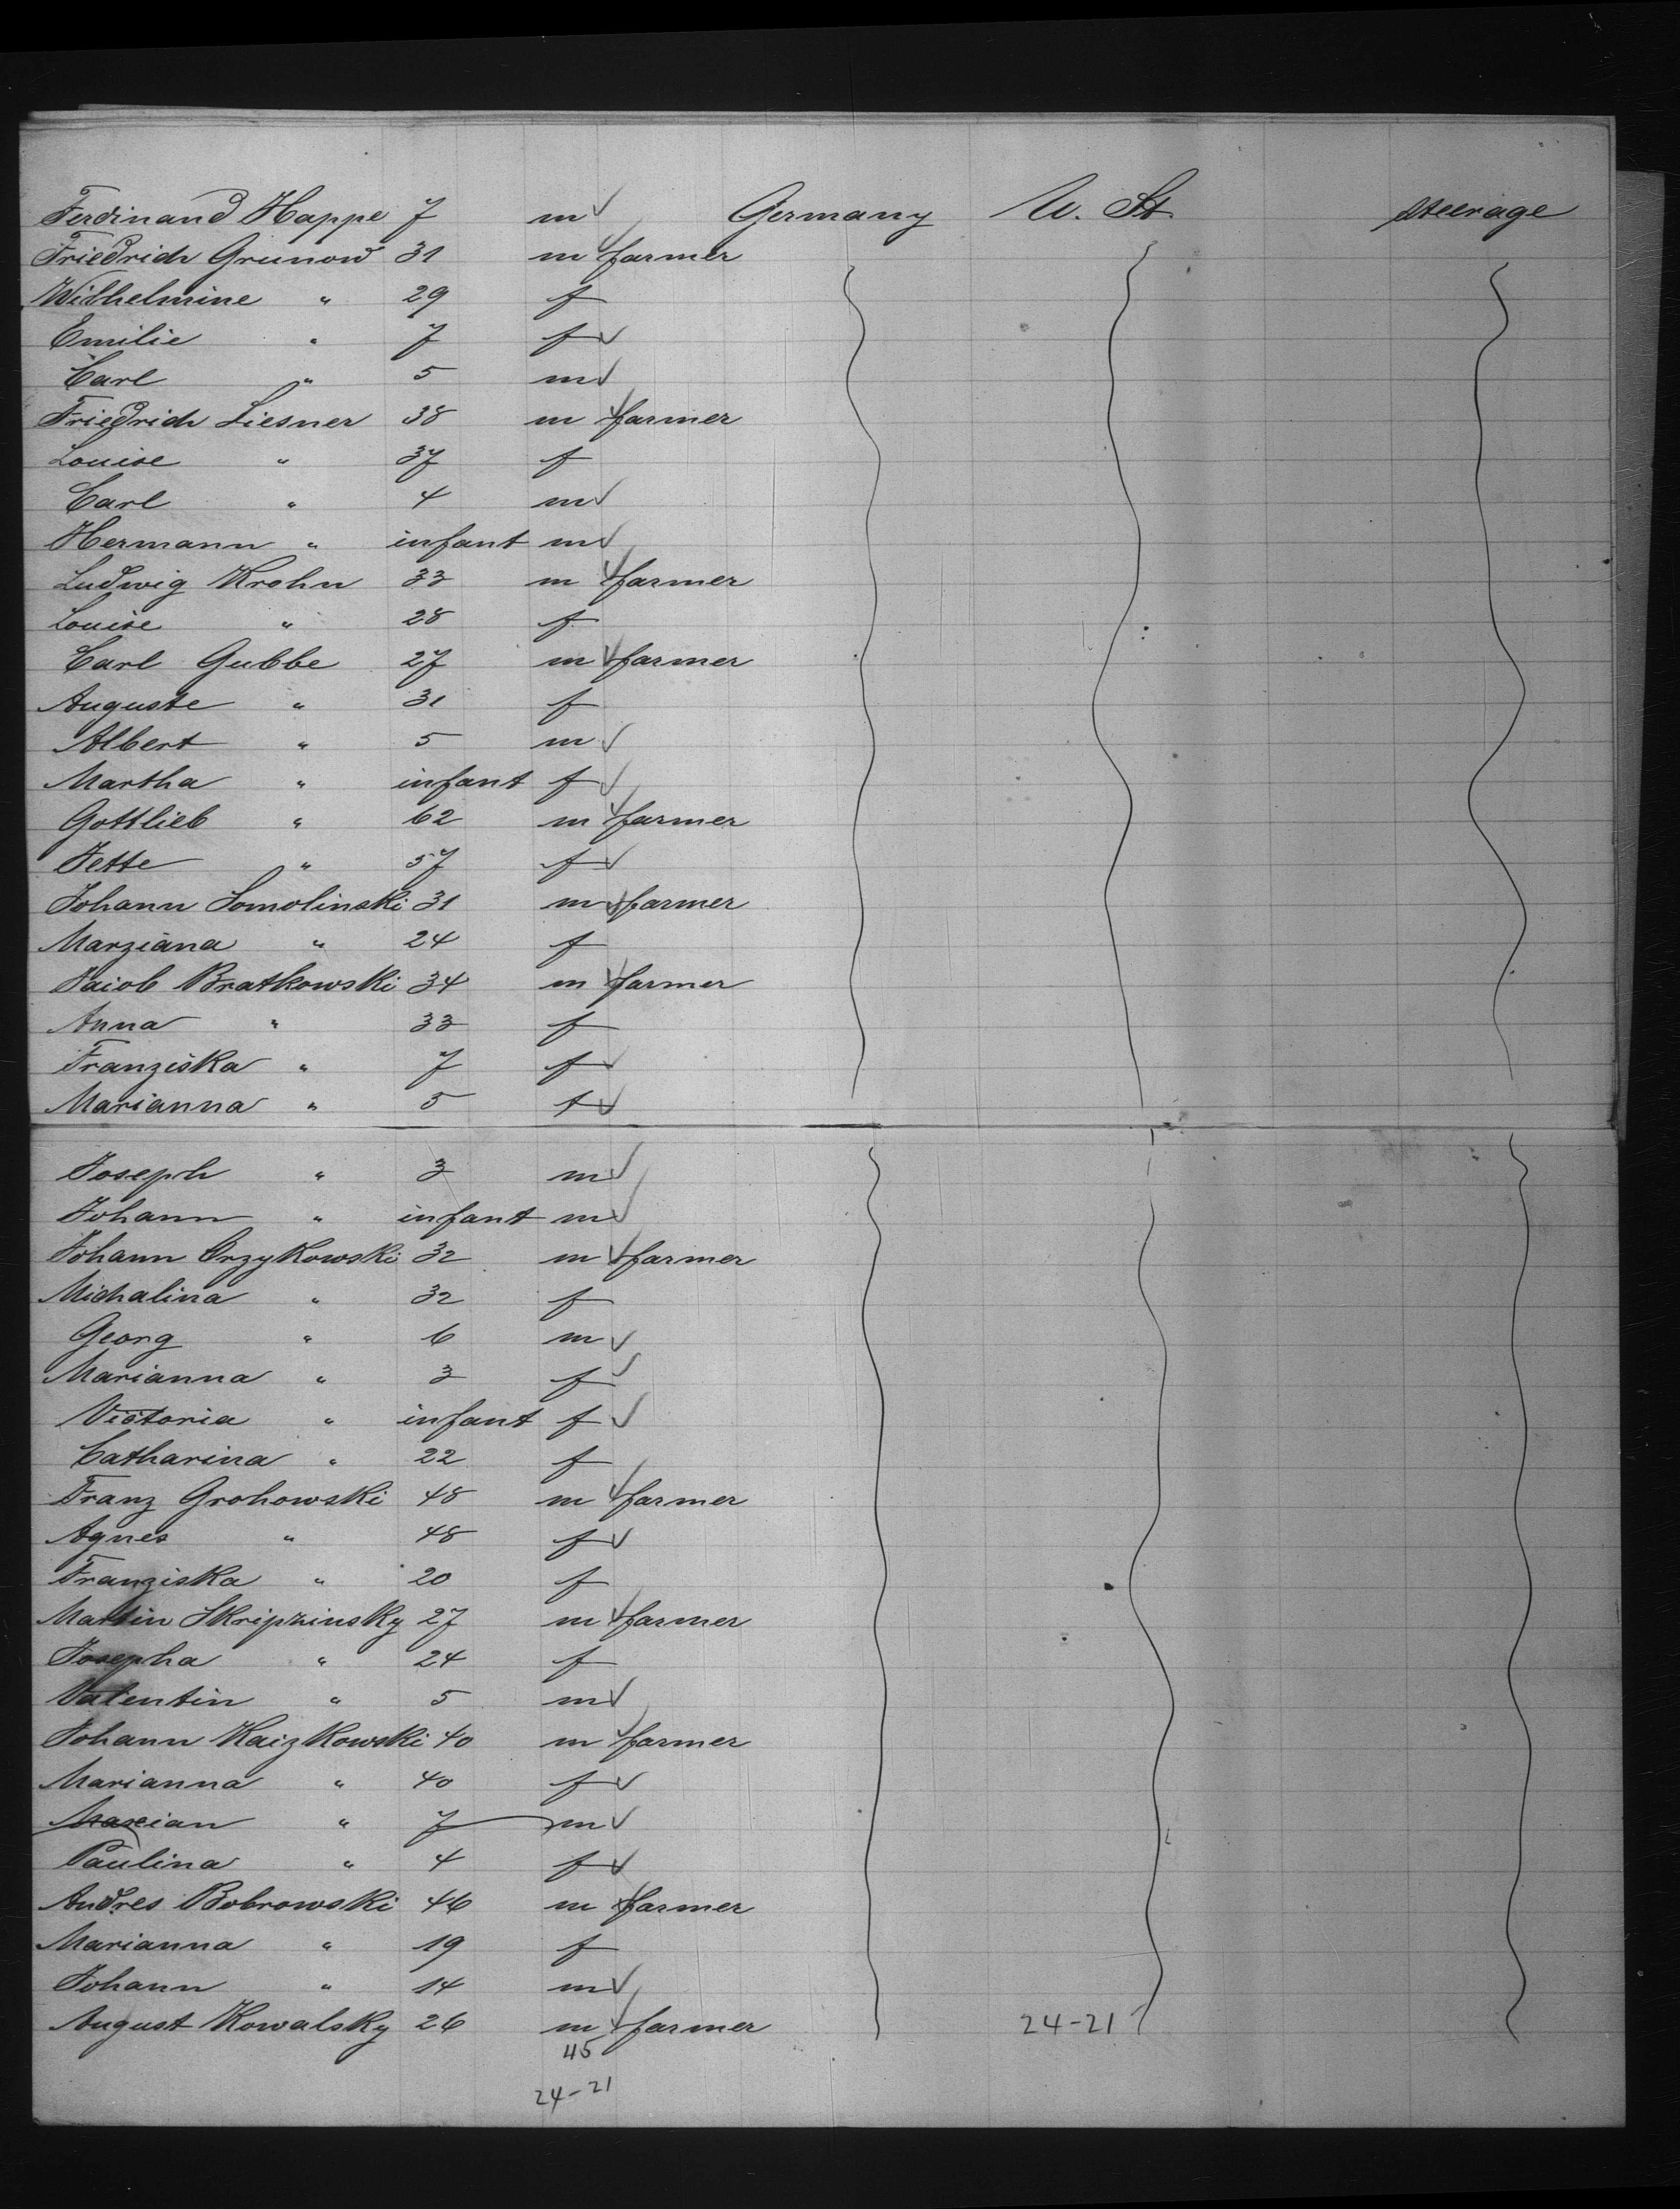 Ferdinand Happe 7 m Germany U. St. steerage
Friedrich Grunow 31 m farmer
Wilhelmine " 29 f
Emilie " 7 f
Carl " 5 m
Friedrich Liesner 38 m farmer
Louise " 37 f
Carl " 4 m
Hermann " infant m
Ludwig Krohn 33 m farmer
Louise " 28 f
Carl Gubbe 27 m farmer
Auguste " 31 f
Albert " 5 m
Martha " infant f
Gottlieb " 62 m farmer
Jette " 57 f
Johann Somolinski 31 m farmer
Marziana " 24 f
Jaiob Bratkowski 34 m farmer
Anna " 33 f
Franziska " 7 f
Marianna " 5 f
Joseph " 3 m
Johann " infant m
Johann Orzykowski 32 m farmer
Michalina " 32 f
Georg " 6 m
Marianna " 3 f
Victoria " infant f
Catharina " 22 f
Franz Grohowski 48 m farmer
Agnes " 48 f
Franziska " 20 f
Martin Skripzinsky 27 m farmer
Josepha " 24 f
Valentin " 5 m
Johann Kaizkowski 40 m farmer
Marianna " 40 f
Marian " 7 m
Paulina " 4 f
Andres Bobrowski 46 m farmer
Marianna " 19 f
Johann " 14 m
August Kowalsky 26 m farmer 24-21
45
24-21